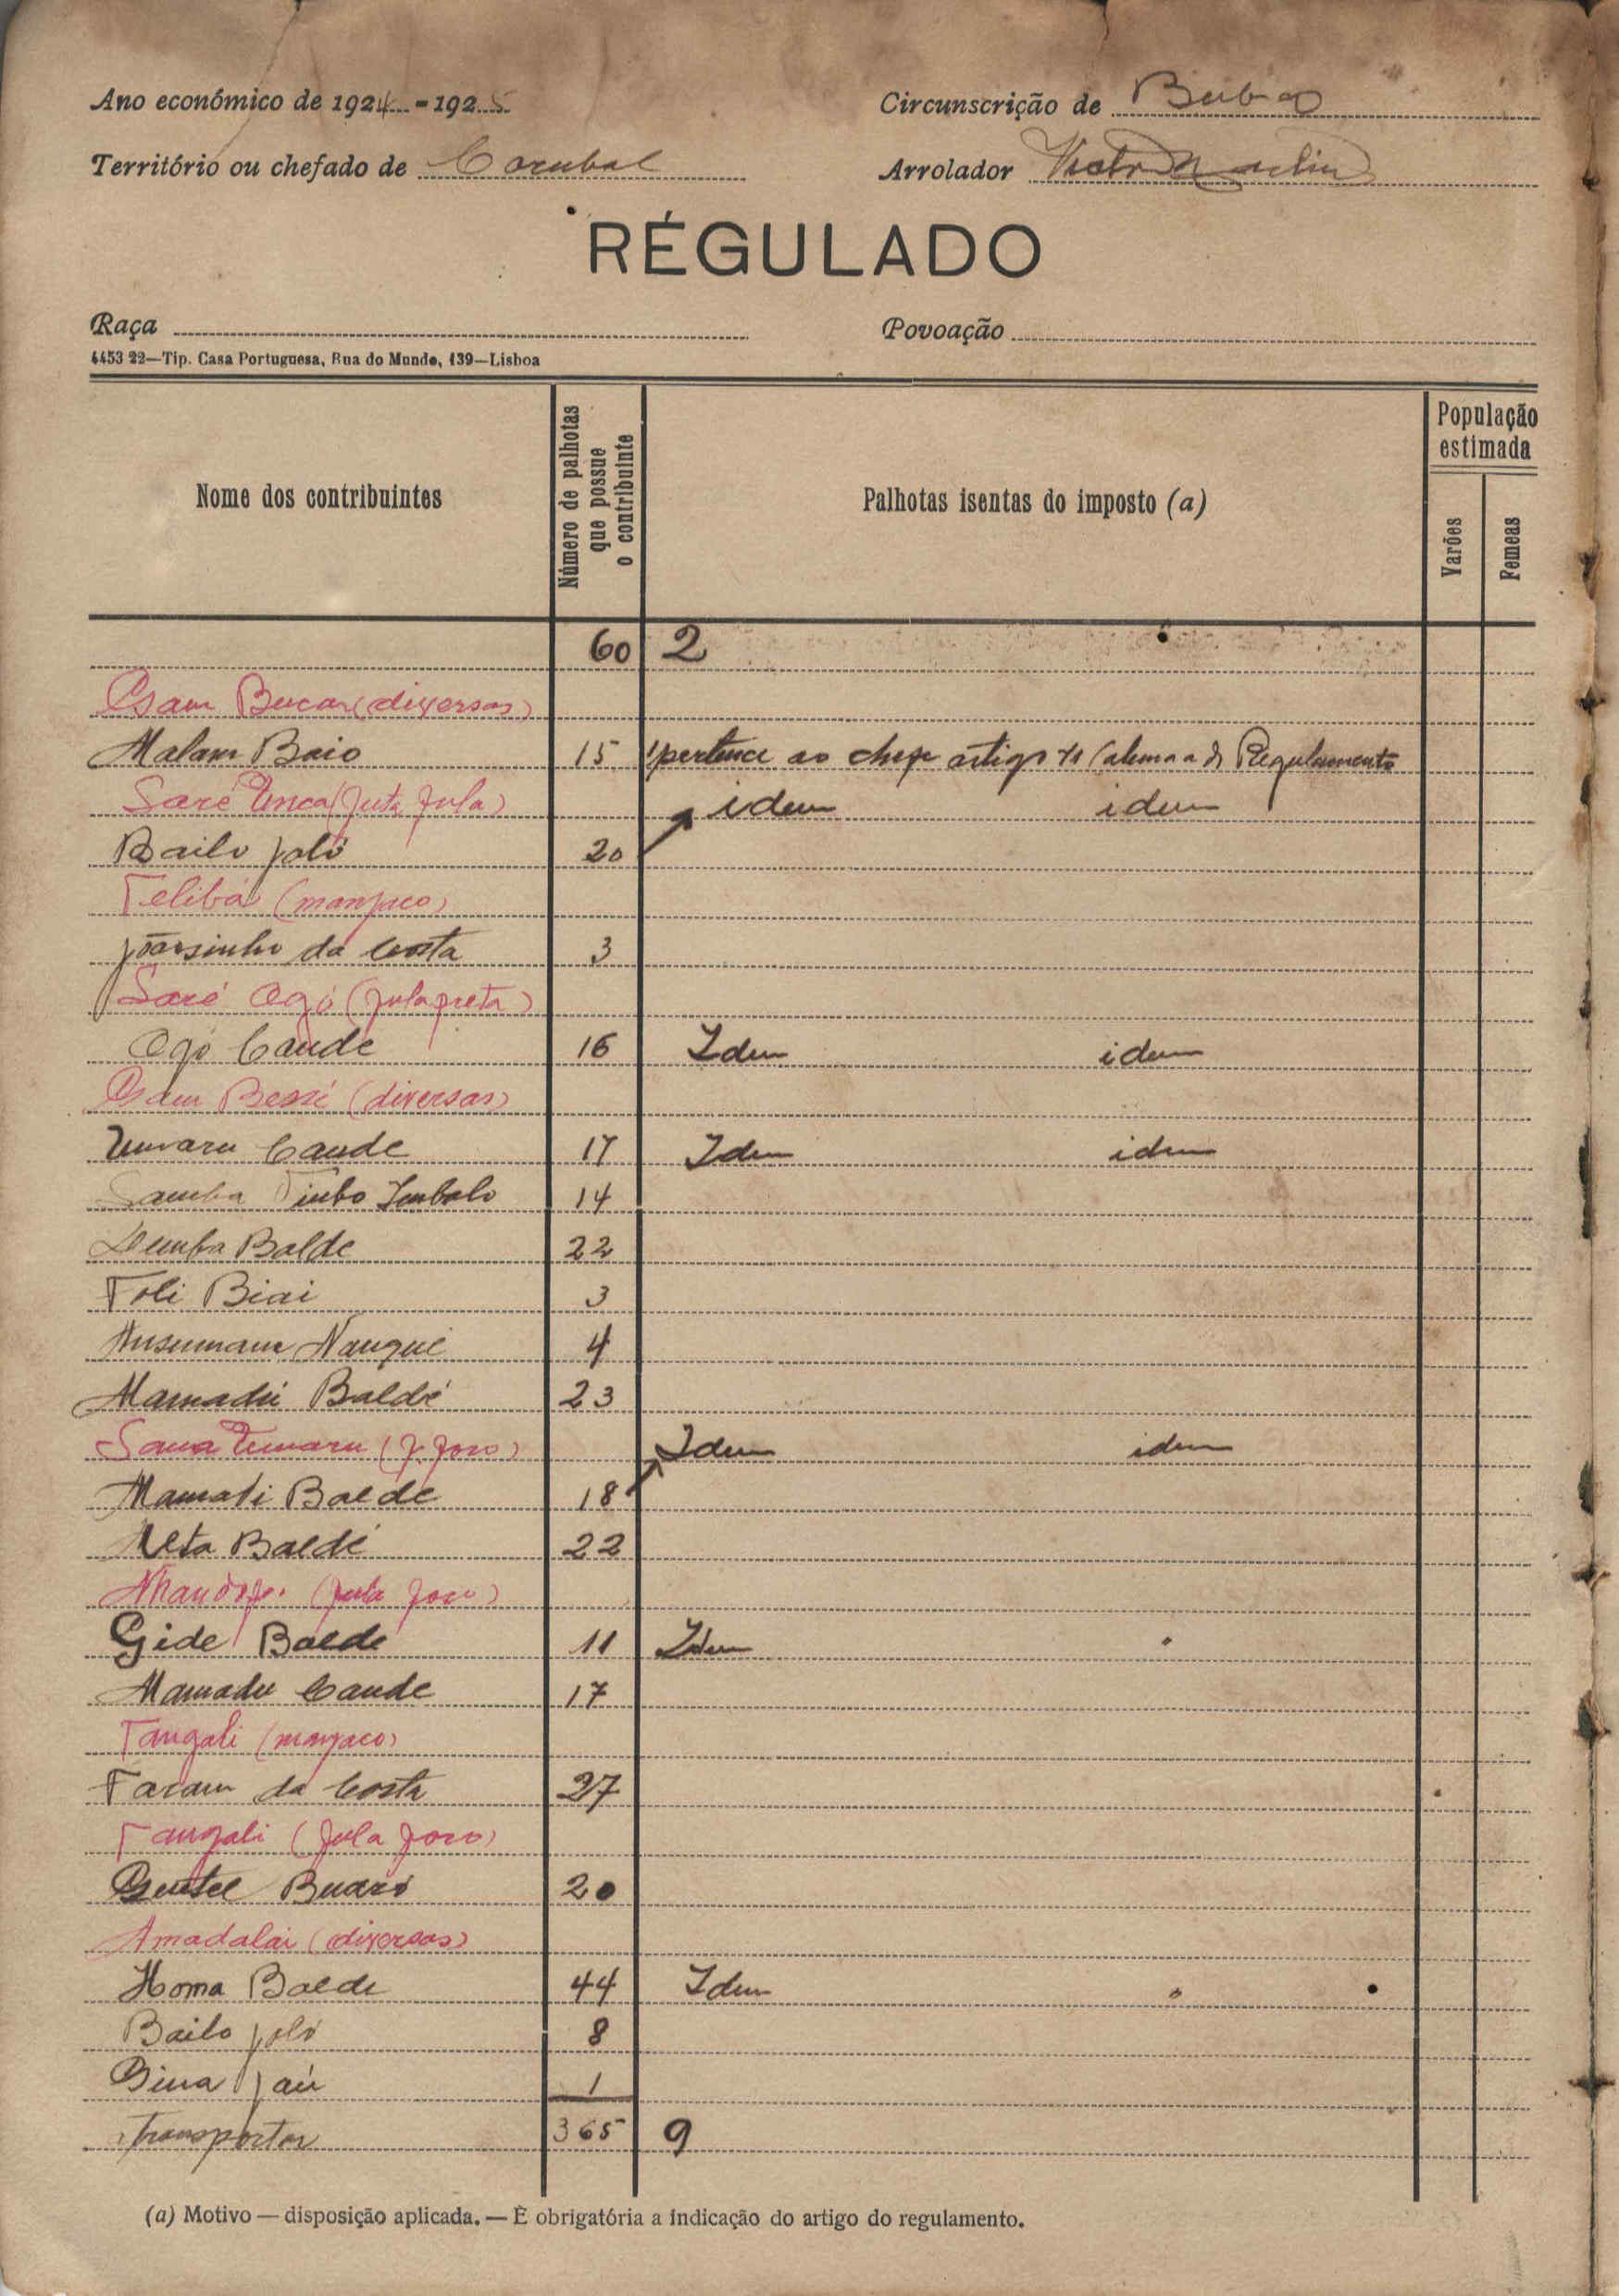 Ano económico de 1924-1925
Circunscrição de Buba
Território ou chefado de Corubal
Arrolador Victor Martins
RÉGULADO
Raça
Povoação
4453 22—Tip. Casa Portuguesa, Rua do Mundo, 139—Lisboa
Nome dos contribuintes
Número de palhotas que possue o contribuinte
Palhotas isentas do imposto (a)
População estimada
Varões
Femeas
60 2
Bucar (diversas)
Malam Baio 15 1 pertence ao chefe artigo (alinea a do Regulamento
Saré (futa fula) idem idem
Bailo Jaló 20
Telibá (manjaco)
Joãosinho da Costa 3
Saré Ogó (fula preta)
Ogó Cande 16 Idem idem
(diversas)
Umaru Cande 17 Idem idem
Samba 14
Demba Balde 22
Toli Biai 3
Nanque 4
Mamadú Baldé 23
Sama Umaru (f. foro) Idem idem
Mamadi Balde 18
Alta Baldé 22
(fula foro)
Gide Balde 11 Idem "
Mamadu Cande 17
Tangali (manjaco)
da Costa 27
Tangali (fula foro)
Buaró 20
Amadalai (diversas)
Homa Balde 44 Idem "
Bailo Jaló 8
Jaú 1
Transportar 365 9
(a) Motivo — disposição aplicada. — É obrigatória a indicação do artigo do regulamento.